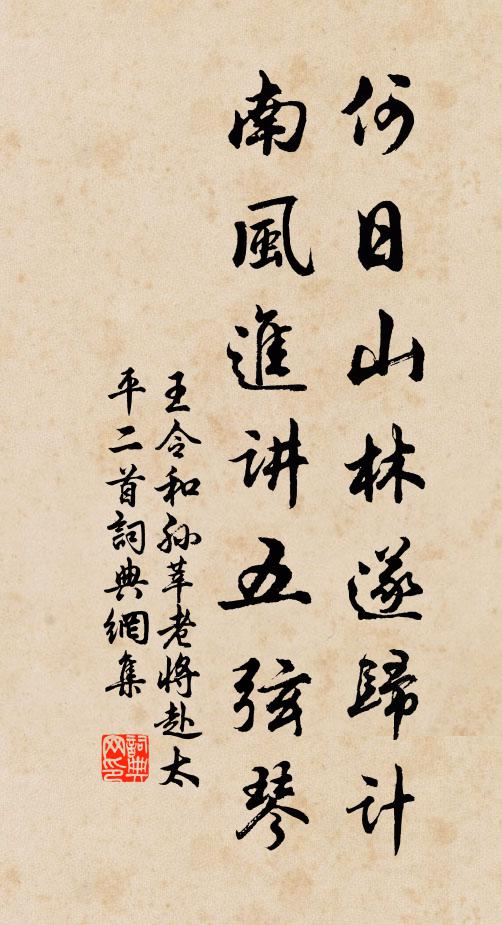 何日山林遂歸计
南風進讲五弦琴
王令和孙莘老将赴太
平二首詞典網集
詞典
网印